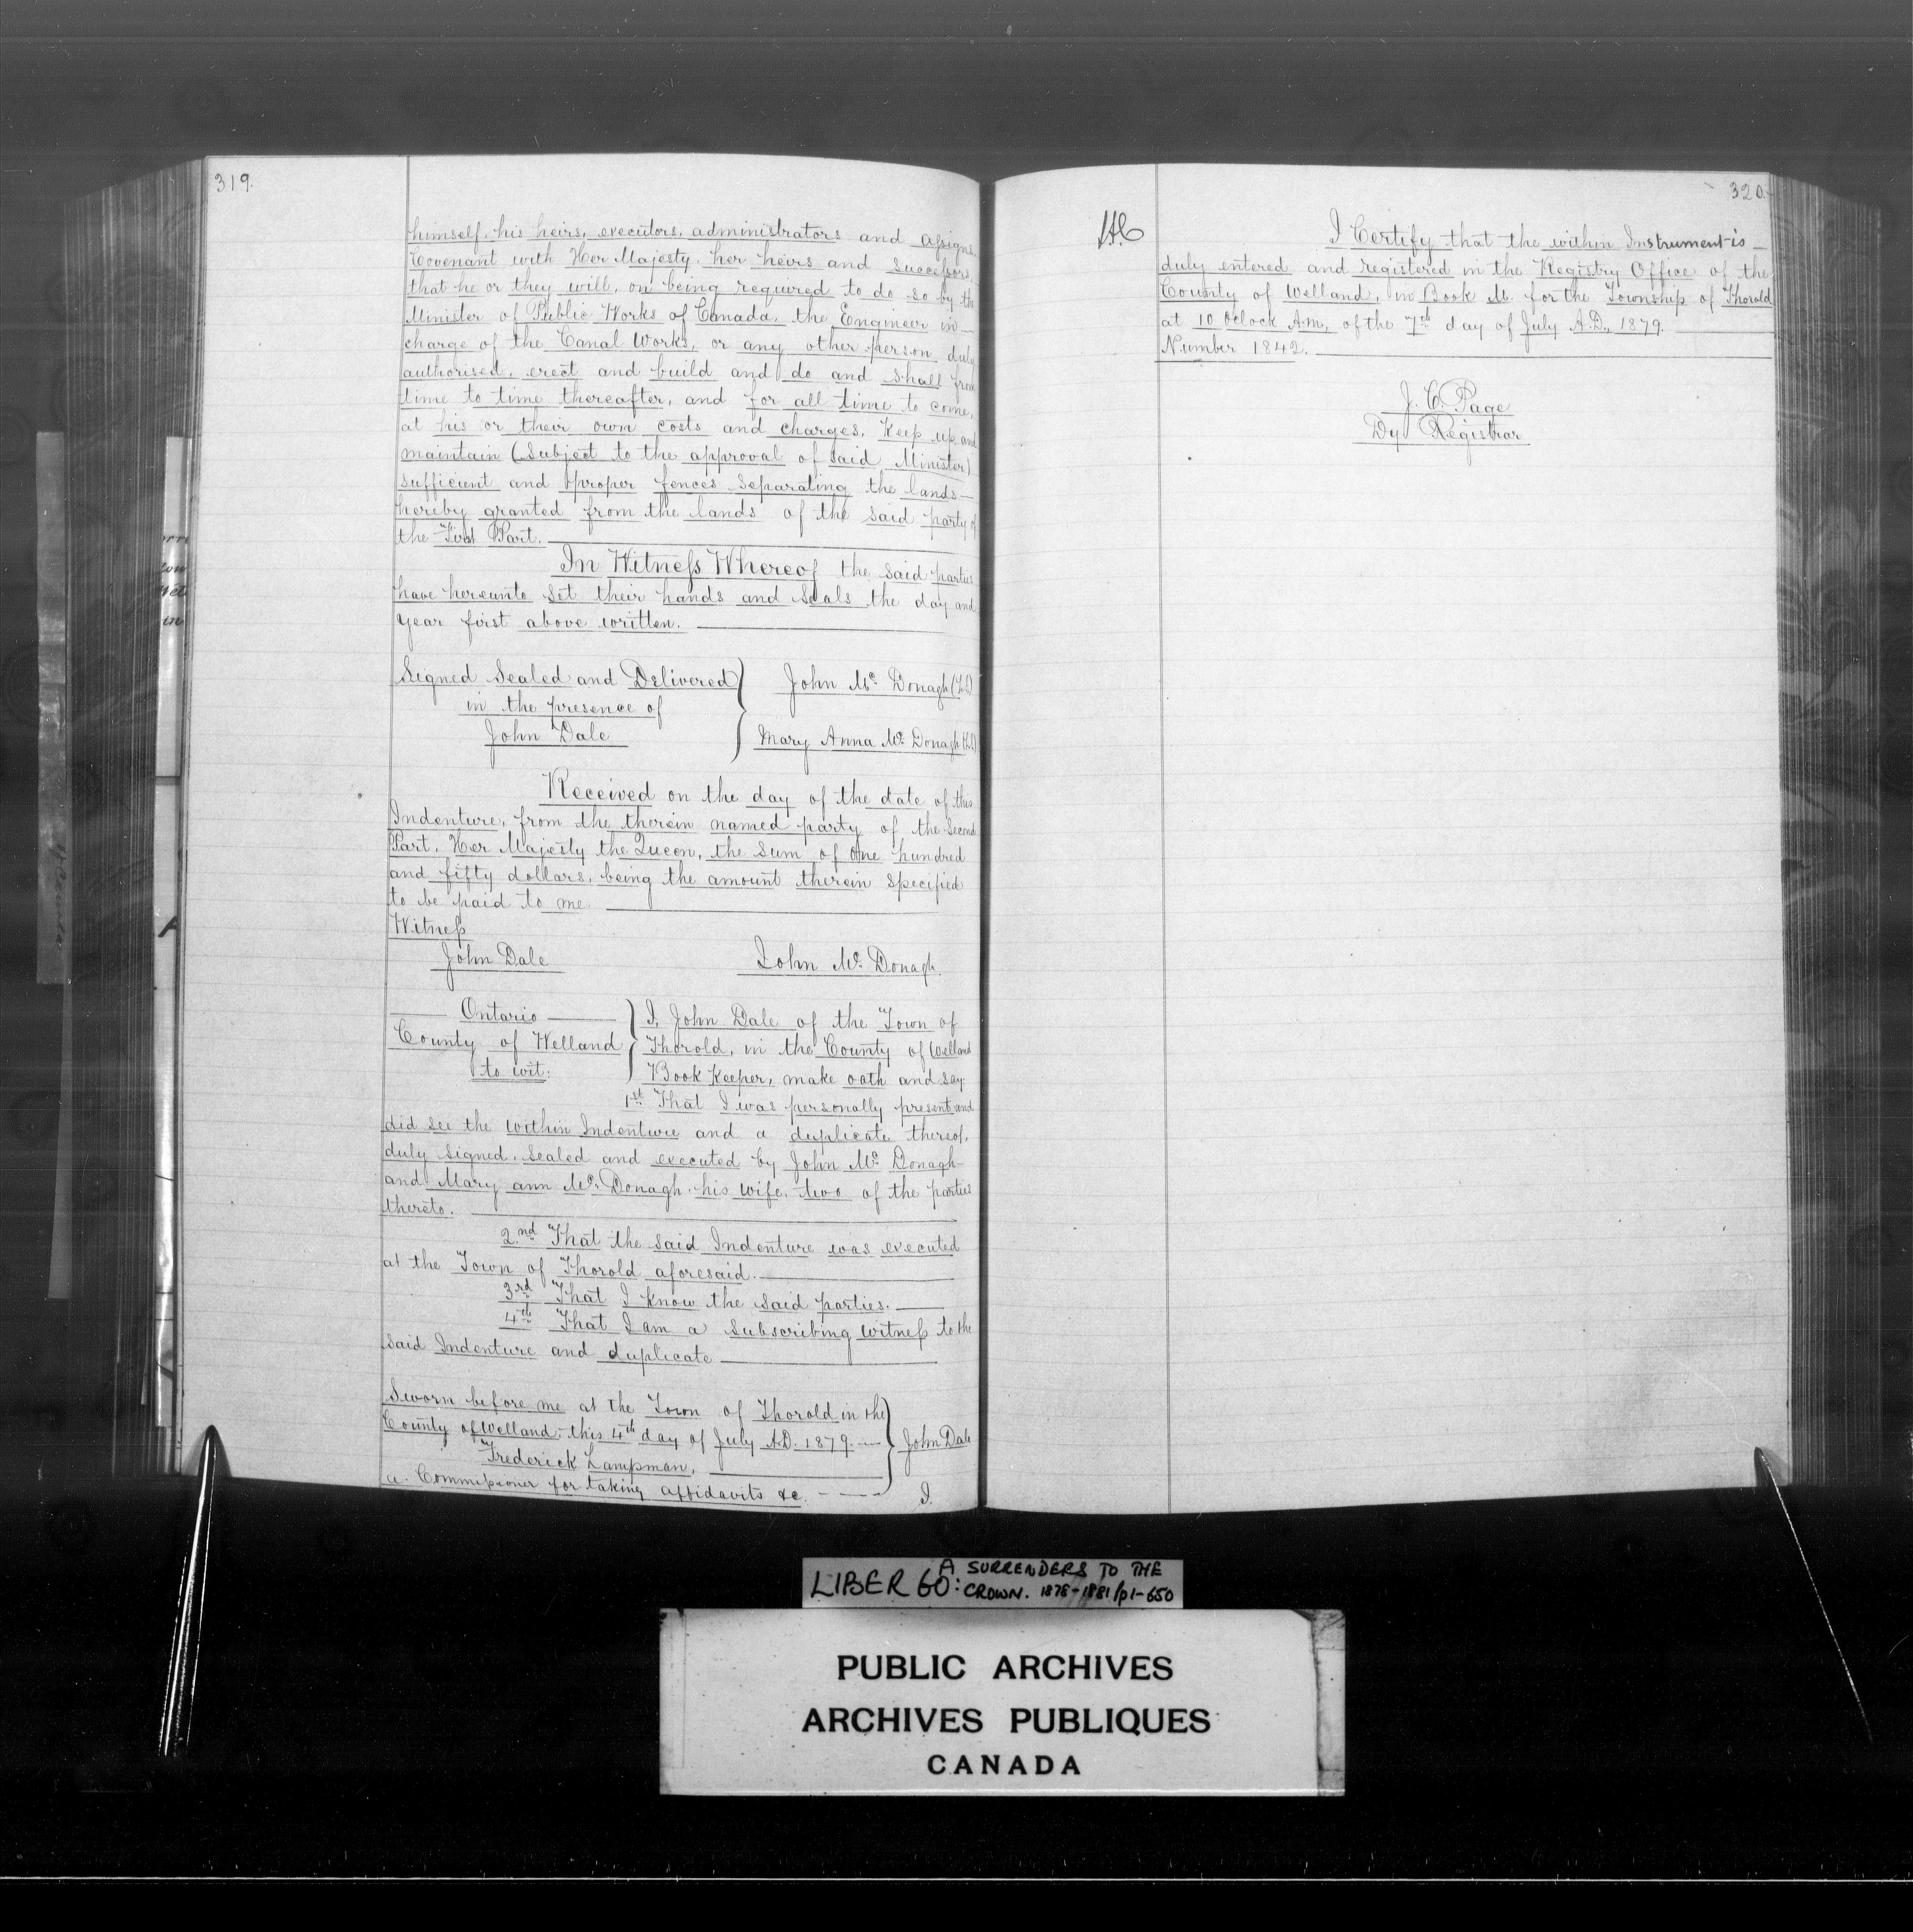 319.
himself, his heirs, executors, administrators and assigns
Covenant with Her Majesty, her heirs and successors,
that he or they will, on being required to do so by the
Minister of Public Works of Canada, the Engineer in—
charge of the Canal Works, or any other person duly
authorised, erect and build and do and shall from
time to time thereafter, and for all time to come,
at his or their own costs and charges, Keep up and
maintain (Subject to the approval of said Minister)
sufficient and proper fences separating the lands—
hereby granted from the lands of the said party of
the First Part.
In Witness Whereof the said parties
have hereunto set their hands and seals the day and
year first above written.
Signed Sealed and Delivered
in the presence of
John Dale
John Mc Donagh (L.S.)
Mary Anna Mc Donagh (L.S.)
Received on the day of the date of this
Indenture, from the therein named party of the Second
Part, Her Majesty the Queen, the Sum of One hundred
and fifty dollars, being the amount therein specified
to be paid to me.
Witness
John Dale
John Mc Donagh.
Ontario
County of Welland
to wit:
I, John Dale of the Town of
Thorold, in the County of Welland
Book Keeper, make oath and say.
1st That I was personally present and
did see the within Indenture and a duplicate thereof,
duly signed, sealed and executed by John Mc Donagh
and Mary ann Mc Donagh his wife, two of the parties
thereto.
2nd That the said Indenture was executed
at the Town of Thorold aforesaid.
3rd That I know the said parties.
4th That I am a Subscribing witness to the
said Indenture and duplicate
Sworn before me at the Town of Thorold in the
County of Welland, this 4th day of July A.D. 1879.
Frederick Lampman,
a Commissioner for taking affidavits &c.
John Dale
I.
320.
I Certify that the within Instrument is
duly entered and registered in the Registry Office of the
County of Welland, in Book M. for the Township of Thorold
at 10 Oclock A.M, of the 7th day of July A.D., 1879.
Number 1842.
J. C. Page
Dy Registrar
LIBER 60: A SURRENDERS TO THE
CROWN. 1878-1881/p1-650
PUBLIC ARCHIVES
ARCHIVES PUBLIQUES
CANADA